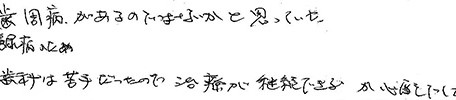 歯周病があるのではないかと思っていた
尿病のため
歯科は苦手だったので 治療が継続できるか心配をして